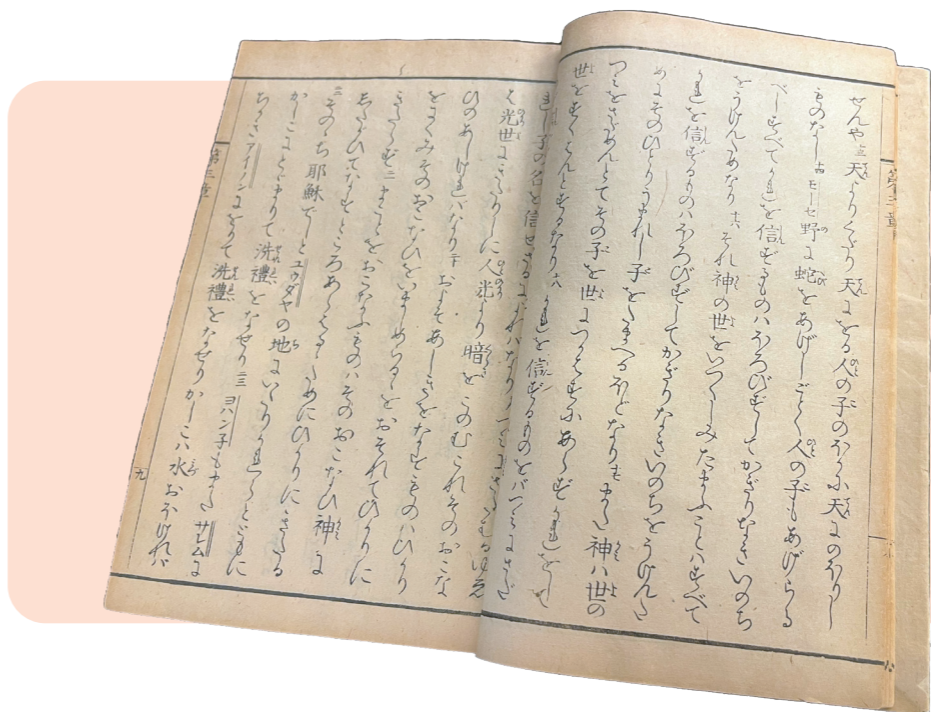 せんや 十三 天よりくだり天にをる人の子のほかに天にのぼりし
ものなし 十四 モーセ野に蛇をあげしごとく人の子もあげらる
べし すべてかれを信ずるものハほろびずしてかぎりなきいのち
をうけんためなり 十六 それ神の世をいつくしみたまふことハすべて
かれを信ずるものハほろびずしてかぎりなきいのちをうけんた
めにそのひとりうまれし子をたまへるほどなり 十七 また神ハ世の
つみをさだめんとてその子を世につかはすにあらずかれをして
世をすくはんとするなり 十八 かれを信ずるものをバつミにさだ
れし子の名を信ぜざるによれバなり
ハ光世にきたりしに人光より暗をこのむこれそのおこな
ひのあしけれバなり 二十 およそあしきをなすものハひかり
をにくみそのおこなひをいましめらるゝをおそれてひかりに
きたらず 二一 まことをおこなふものハそのおこなひ神に
したがひてなすところあらはるゝためにひかりにきたる
二二 そののち耶穌でしとユダヤの地にいたりかれらとともに
かしこにとどまりて洗禮をなせり 二三 ヨハン子もまたサレムに
ちかきアイノンにをりて洗禮をなせりかしこハ水おほけれバ
第三章
九